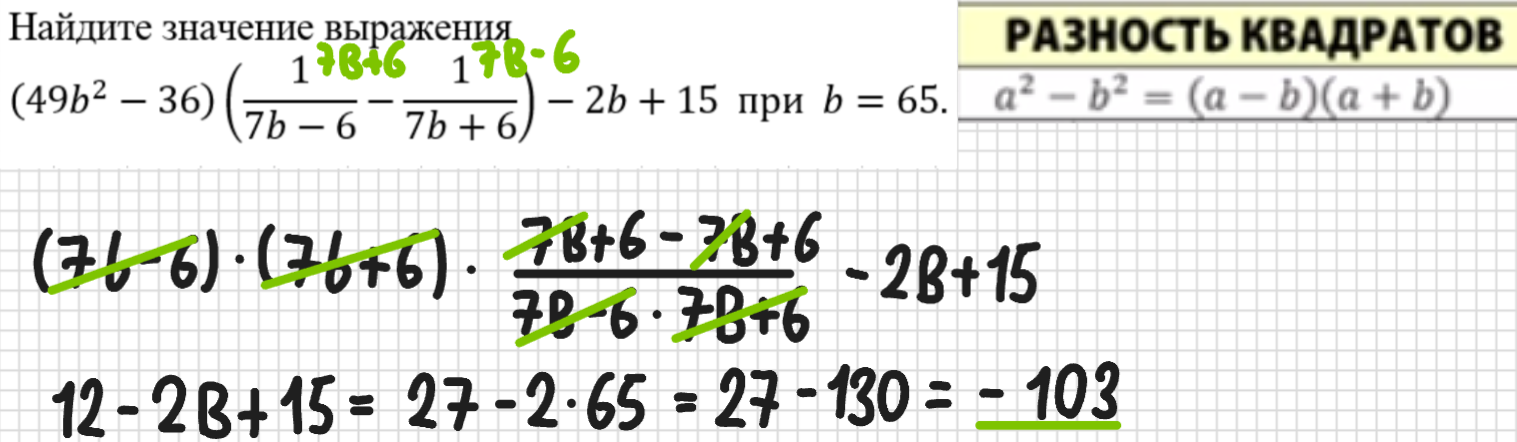 Найдите значение выражения
7В+6 7В-6
(49b² − 36) (1/(7b − 6) − 1/(7b + 6)) − 2b + 15 при b = 65.
РАЗНОСТЬ КВАДРАТОВ
a² − b² = (a − b)(a + b)
(7b-6)·(7b+6)· (7В+6-7В+6)/(7В-6·7В+6) -2В+15
12-2В+15= 27-2·65 =27-130= -103